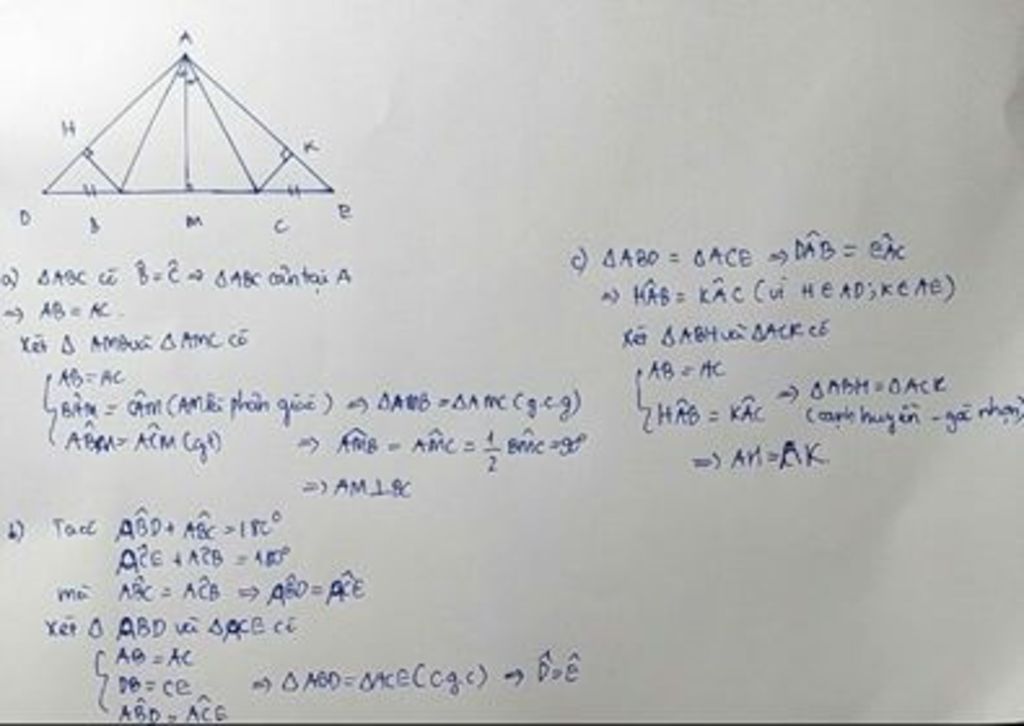 A
H
K
D
B
M
C
E
a) ΔABC có B̂ = Ĉ ⇒ ΔABC cân tại A
⇒ AB = AC.
Xét Δ AMB và Δ AMC có
AB = AC
BÂM = CÂM (AM là phân giác) ⇒ ΔAMB = ΔAMC (g.c.g)
AB̂M = AĈM (gt) ⇒ AM̂B = AM̂C = 1/2 BM̂C = 90°
⇒ AM⊥BC
b) Ta có AB̂D + AB̂C = 180°
AĈE + AĈB = 180°
mà AB̂C = AĈB ⇒ AB̂D = AĈE
Xét Δ ABD và ΔACE có
AB = AC
DB = CE ⇒ ΔABD = ΔACE (c.g.c) ⇒ D̂ = Ê
AB̂D = AĈE
c) ΔABD = ΔACE ⇒ DÂB = EÂC
⇒ HÂB = KÂC (vì H∈AD; K∈AE)
Xét ΔABH và ΔACK có
AB = AC
HÂB = KÂC ⇒ ΔABH = ΔACK
(cạnh huyền - góc nhọn)
⇒ AH = AK.